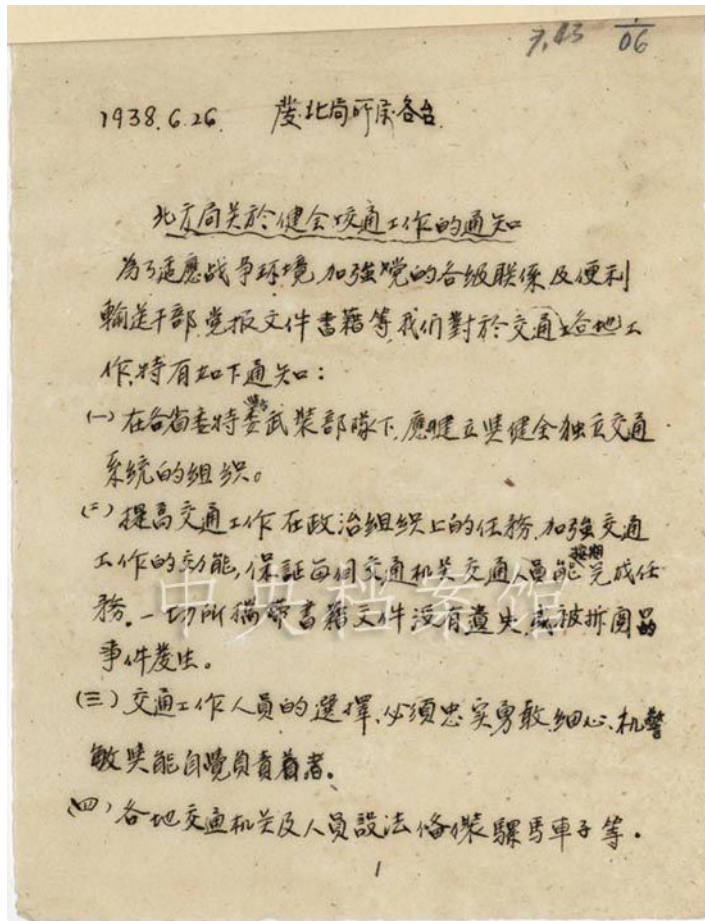 7.43 1/06
1938.6.26. 發北局所属各台.
北方局关於健全交通工作的通知
為了适應战争环境,加強党的各级联係及便利
輸送干部,党报文件書籍等,我们對於交通各地工
作,特有如下通知:
(一)在各省委特委武装部隊下,應建立與健全独立交通
系統的组织。
(二)提高交通工作在政治组织上的任務,加強交通
工作的効能,保証每個交通机关交通人員能按期完成任
務.一切所携帶書籍文件没有遺失或被拆閱的
事件發生。
(三)交通工作人員的選擇,必須忠实勇敢、细心、机警
敏與能自覺負責着者.
(四)各地交通机关及人員設法備儎騾馬車子等.
1
中央档案馆